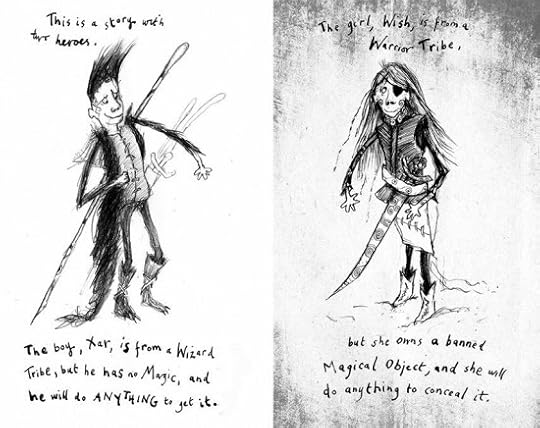 This is a story with
two heroes.
The boy, Xar, is from a Wizard
Tribe, but he has no Magic, and
he will do ANYTHING to get it.
The girl, Wish, is from a
Warrior Tribe,
but she owns a banned
Magical Object, and she will
do anything to conceal it.